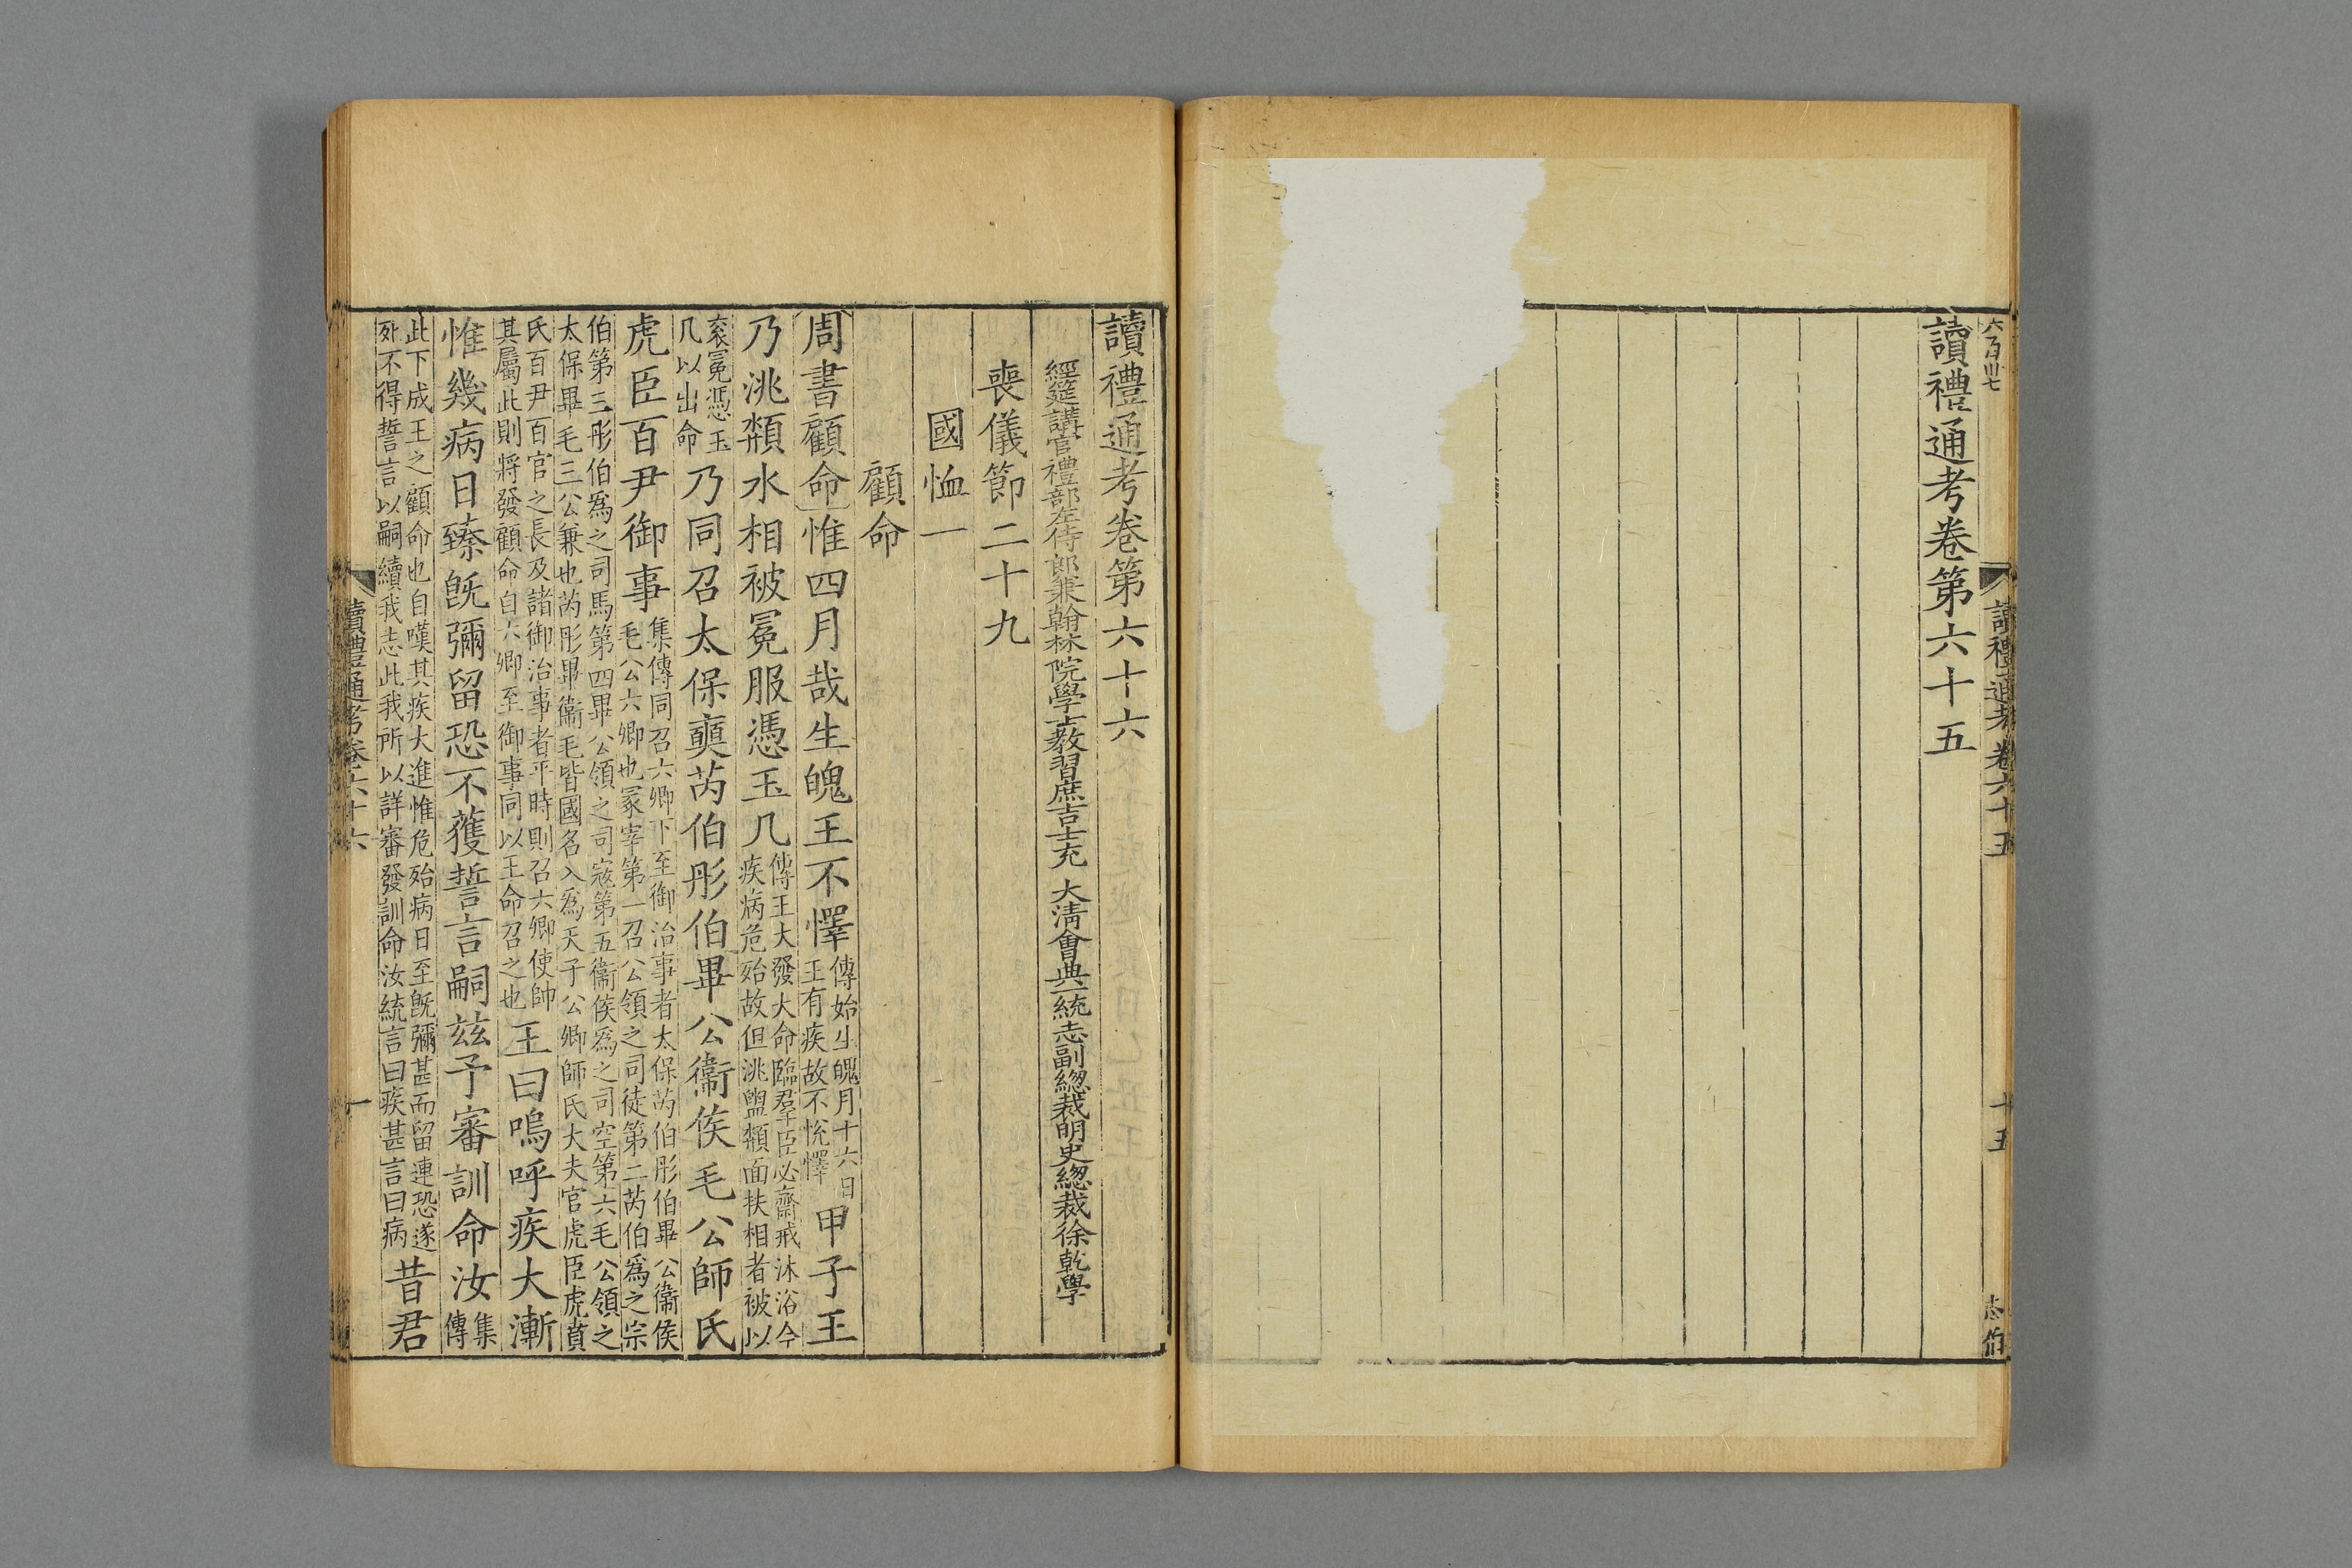 六百卅七
讀禮通考卷六十五
十五
志伯
讀禮通考卷第六十五
讀禮通考卷第六十六
經筵講官禮部左侍郎兼翰林院學士教習庶吉士充 大清會典一統志副總裁明史總裁徐乾學
喪儀節二十九
國恤一
顧命
周書顧命惟四月哉生魄王不懌傳始生魄月十六日王有疾故不悅懌甲子王
乃洮頮水相被冕服憑玉几傳王大發大命臨羣臣必齋戒沐浴今疾病危殆故但洮盥頮面扶相者被以
袞冕憑玉几以出命乃同召太保奭芮伯彤伯畢公衞侯毛公師氏
虎臣百尹御事集傳同召六卿下至御治事者太保芮伯彤伯畢公衞侯毛公六卿也冢宰第一召公領之司徒第二芮伯爲之宗
伯第三彤伯爲之司馬第四畢公領之司寇第五衞侯爲之司空第六毛公領之太保畢毛三公兼也芮彤畢衞毛皆國名入爲天子公卿師氏大夫官虎臣虎賁
氏百尹百官之長及諸御治事者平時則召六卿使帥其屬此則將發顧命自六卿至御事同以王命召之也王曰嗚呼疾大漸
惟幾病日臻旣彌留恐不獲誓言嗣茲予審訓命汝集傳
此下成王之顧命也自嘆其疾大進惟危殆病日至旣彌甚而留連恐遂死不得誓言以嗣續我志此我所以詳審發訓命汝統言曰疾甚言曰病昔君
讀禮通考卷六十六
一